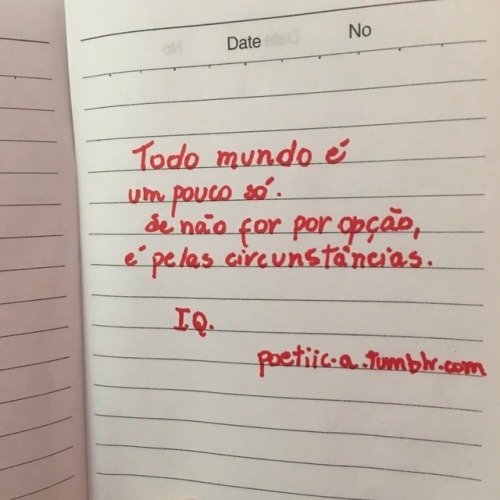 Date No
Todo mundo é
um pouco só.
Se não for por opção,
é pelas circunstâncias.
I.Q.
poetiic-a.tumblr.com